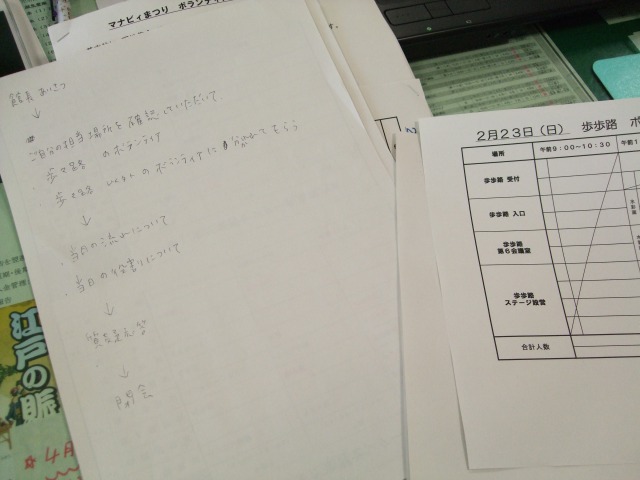 マナビィまつり ボランティ
館長 あいさつ
↓
ご自分の担当場所を確認していただいて、
・歩々路 のボランティア
・歩々路 以外のボランティアに分かれてもらう
↓
・当日の流れについて
・当日の役割りについて
↓
質疑応答
↓
閉会
2月23日(日) 歩歩路 ボ
場所 午前9:00~10:30 午前1
歩歩路 受付
歩歩路 入口
歩歩路
第6会議室
歩歩路
ステージ設営
合計人数
江戸の賑